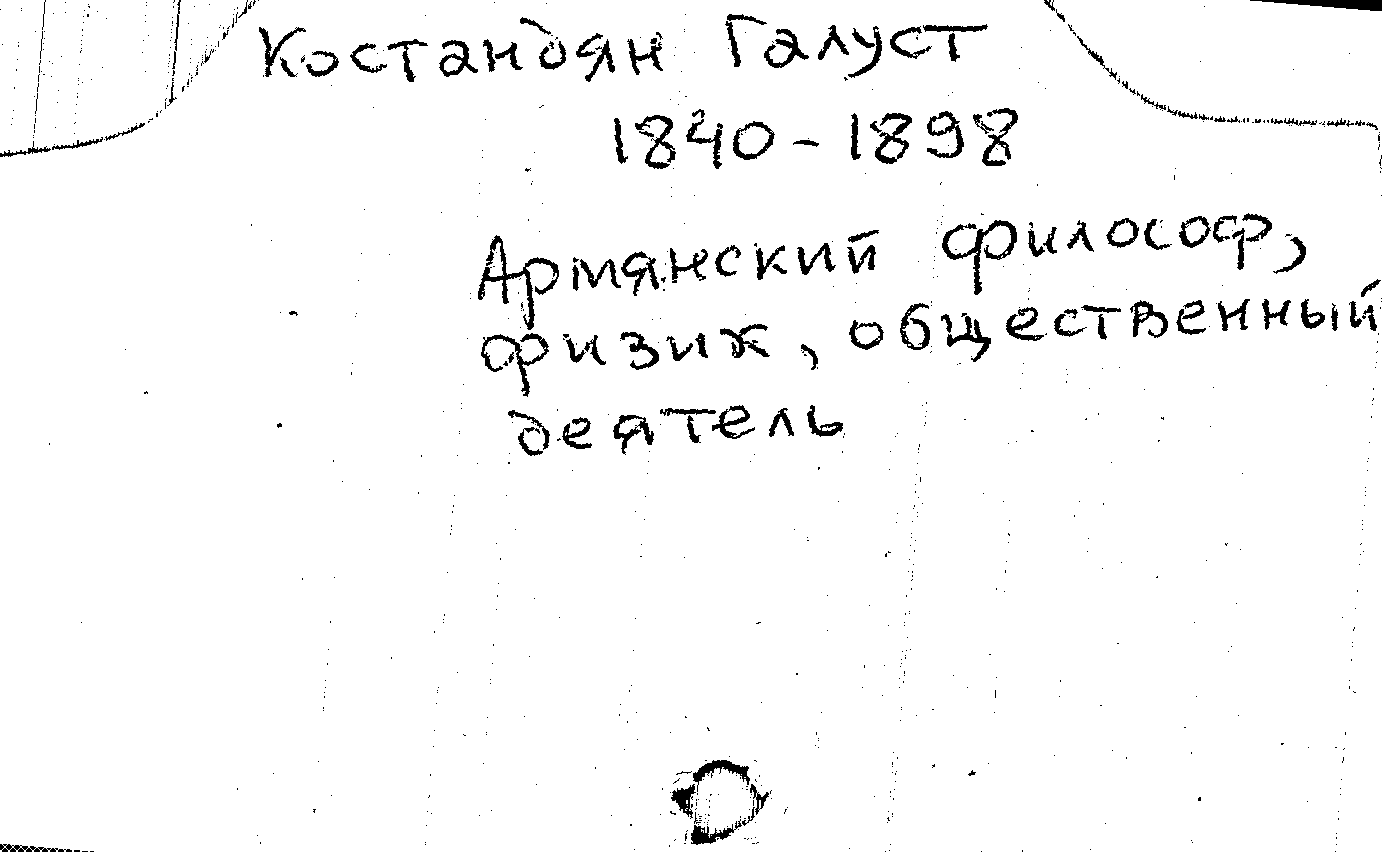 Костандян Галуст
1840-1898
Армянский философ,
физик, общественный
деятель